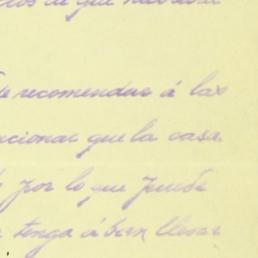 de que
recomendar á las
cionar que la casa
por lo que puede
tenga á bien llevar